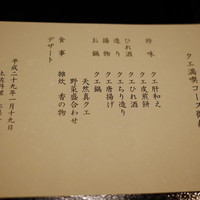 クエ満喫コース
珍味 クエ肝和え
クエ皮煎餅
ひれ酒 クエひれ酒
造り クエちり造り
揚物 クエ唐揚げ
お鍋 クエ鍋
天然真クエ
野菜盛合わせ
食事 雑炊 香の物
デザート
平成二十九年一月十九日